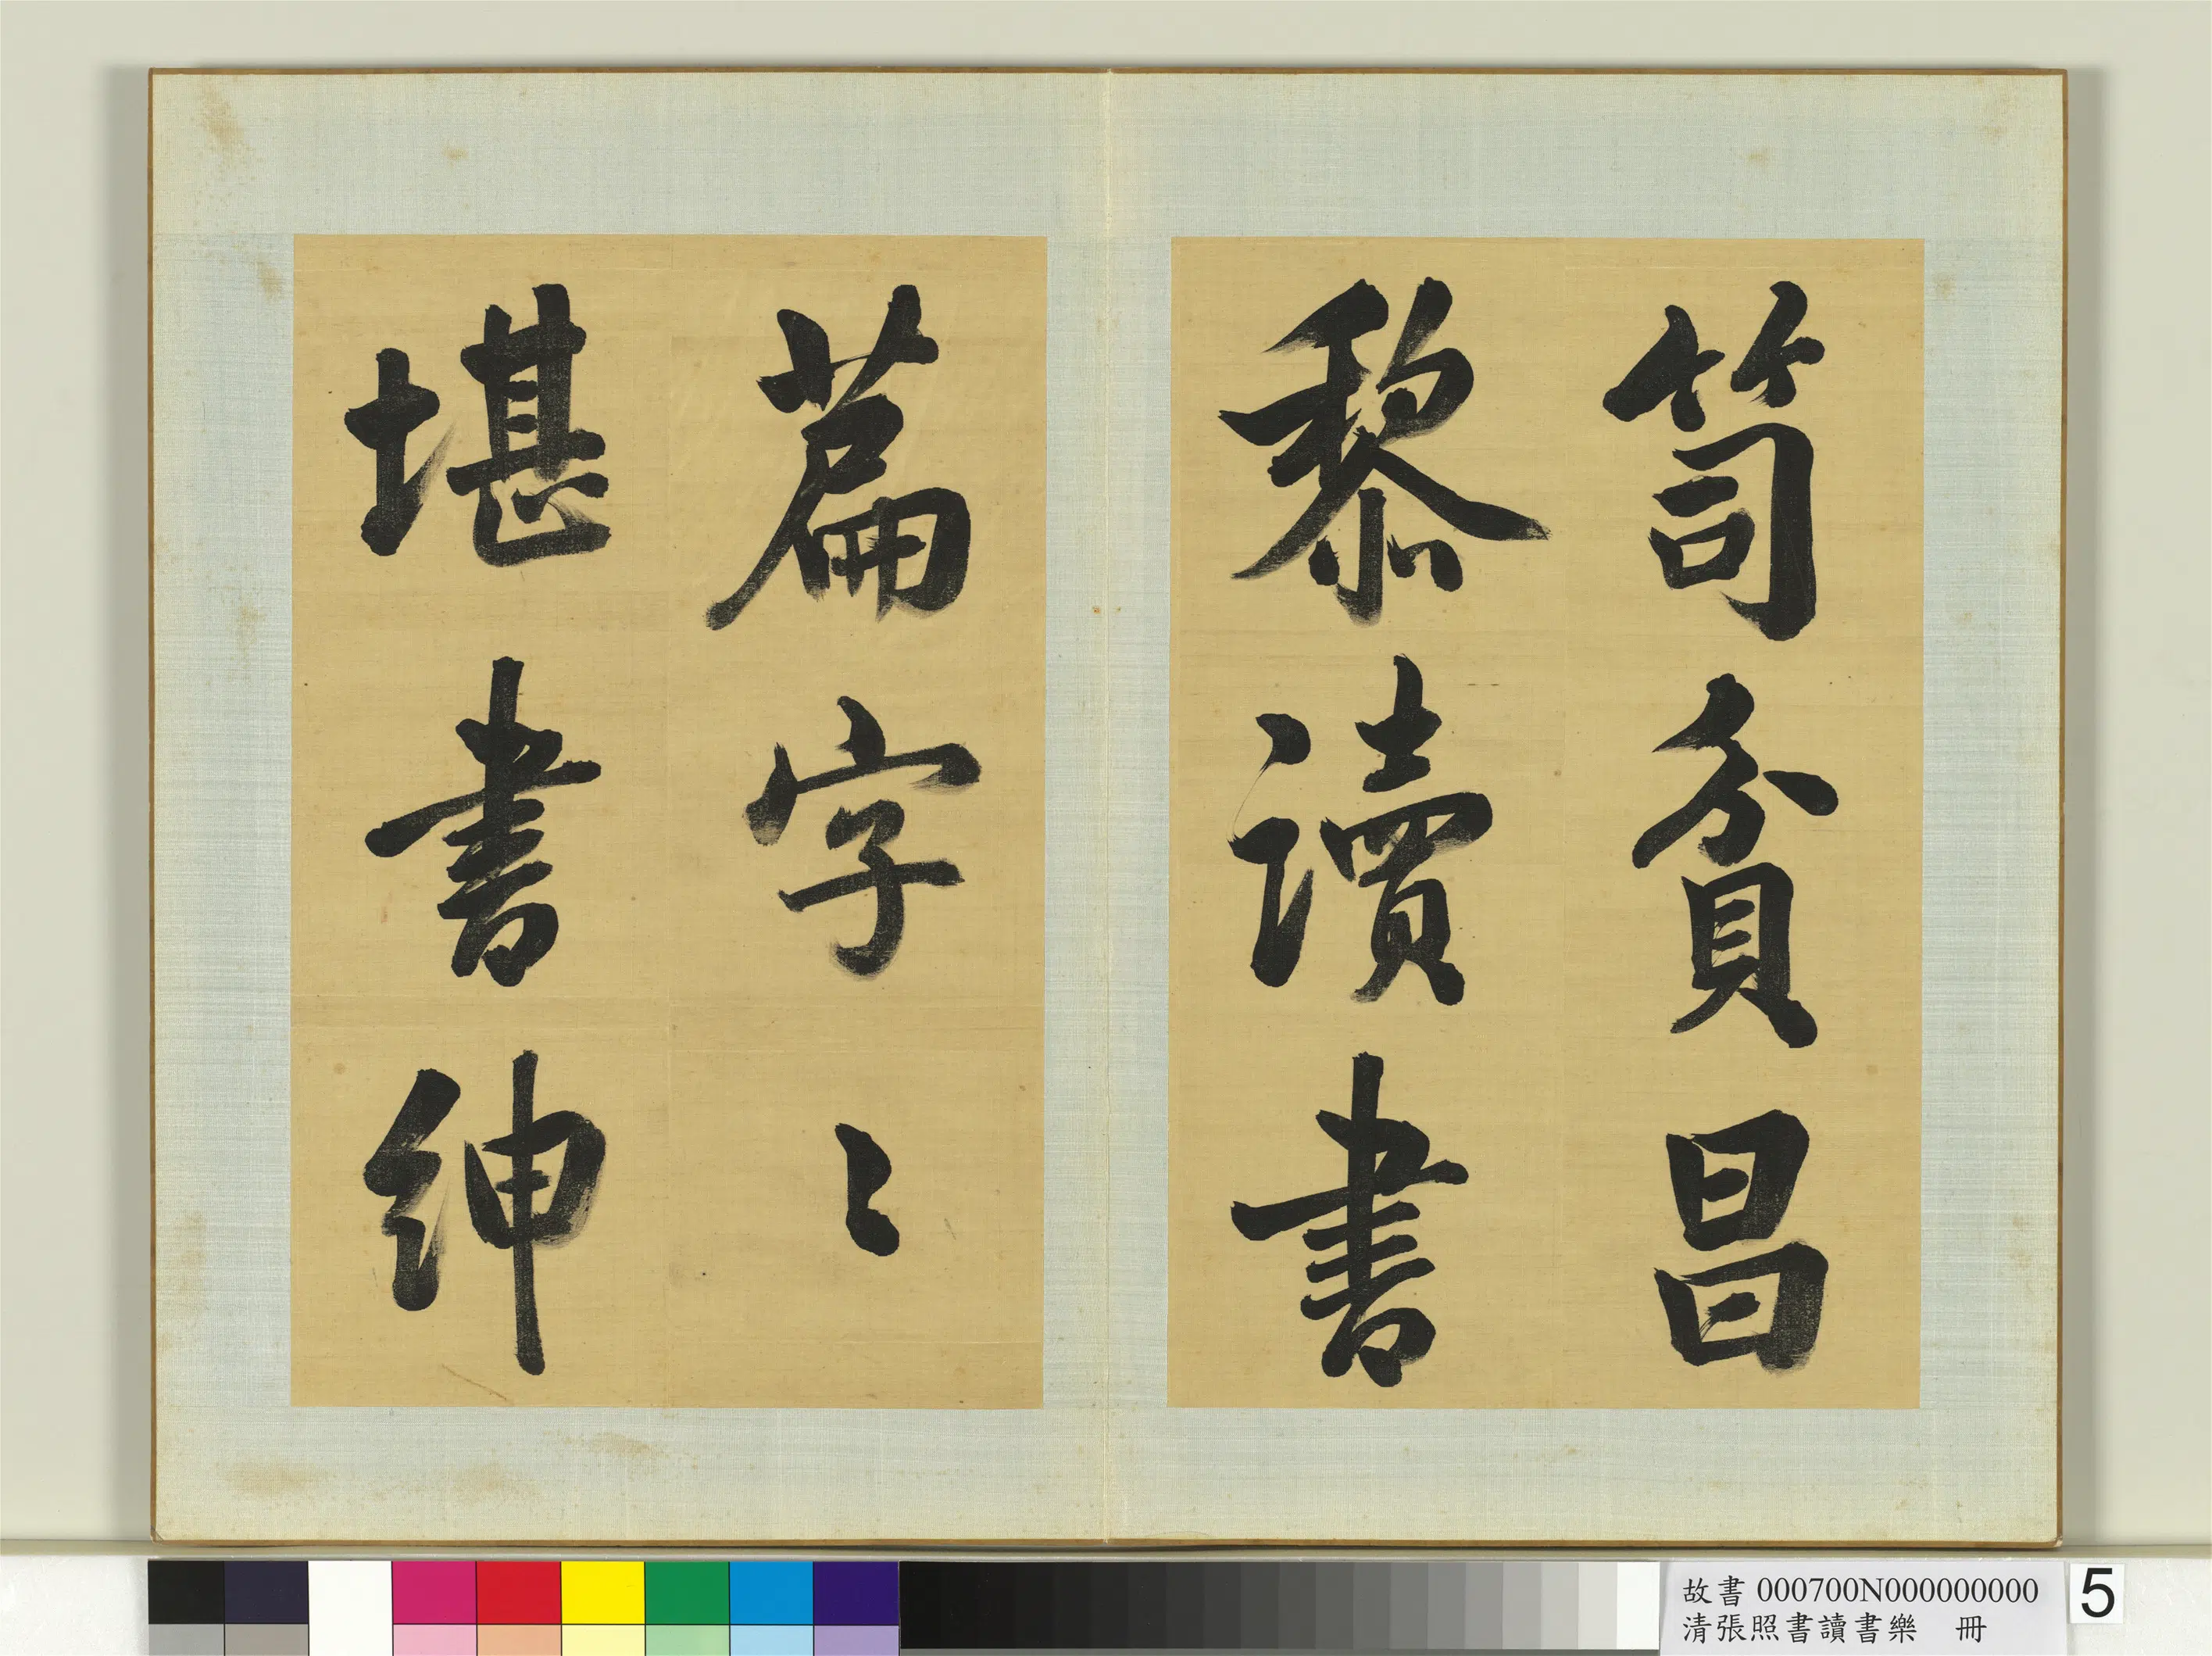 笥貧昌
黎讀書
篇字〻
堪書紳
故書 000700N000000000
清張照書讀書樂 冊
5